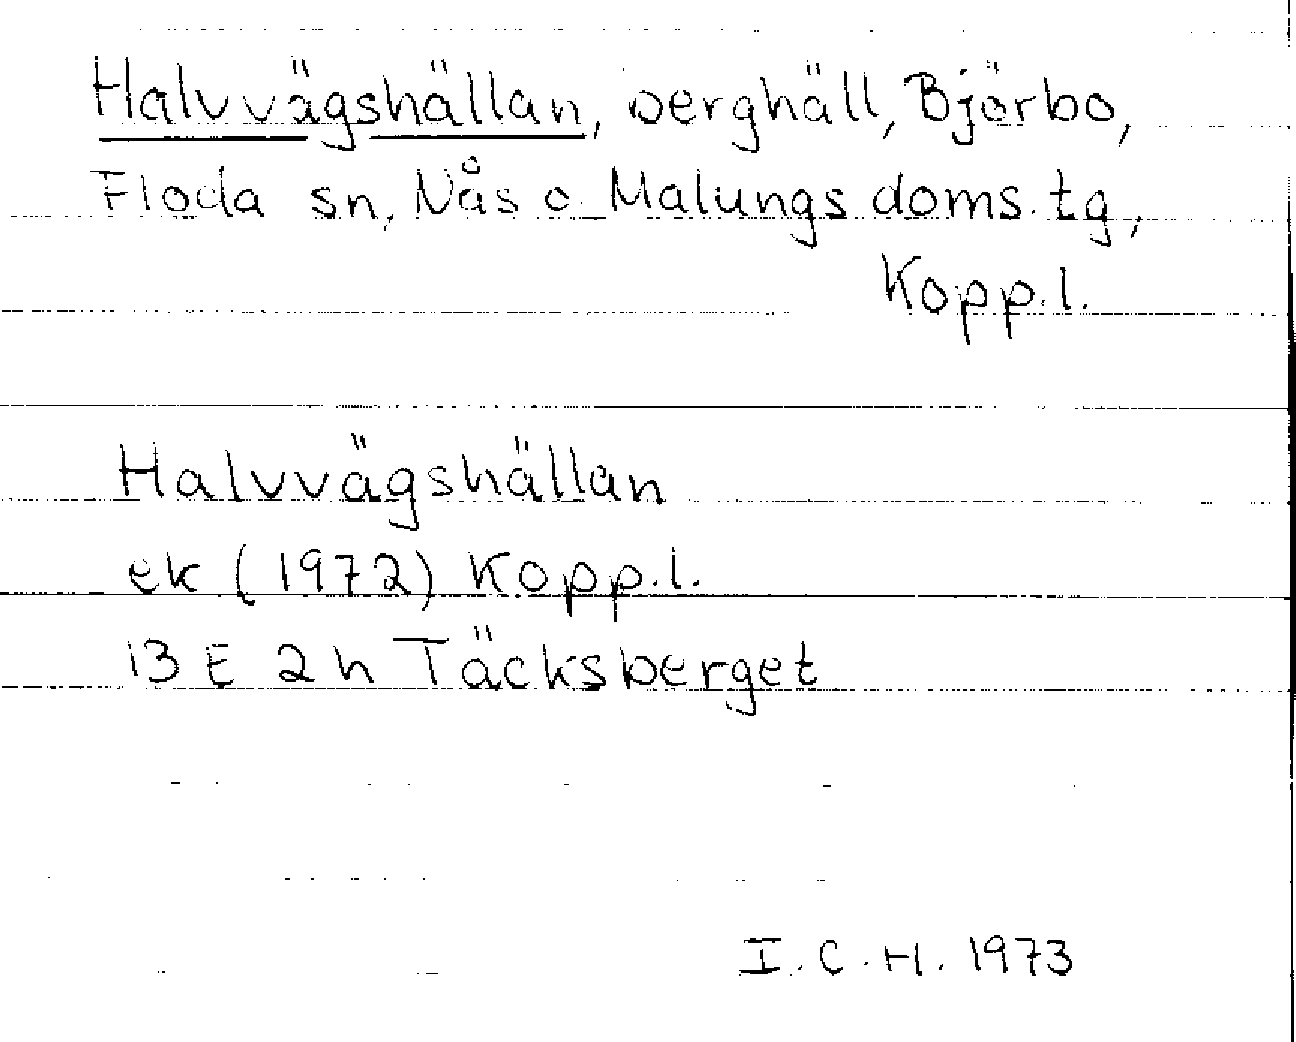 Halvvägshällan, berghäll, Björbo,
Floda sn, Nås o Malungs doms.tg,
Kopp.l.
Halvvägshällan
ek (1972) Kopp.l.
13 E 2h Täcksberget
I.C.H. 1973